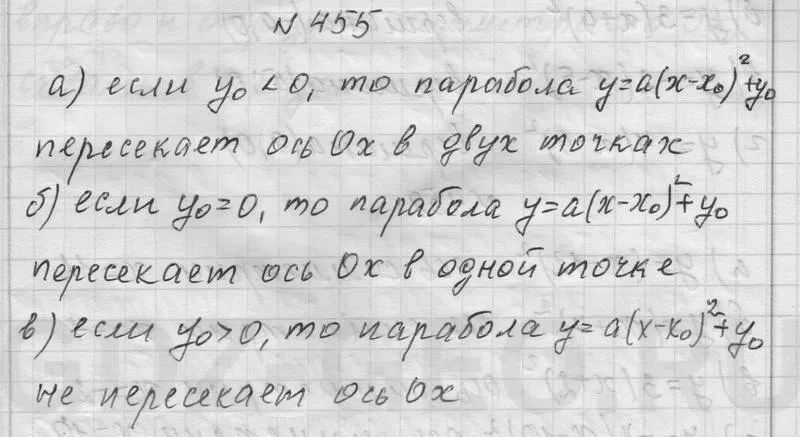 № 455
а) если y₀ < 0, то парабола y=a(x-x₀)²+y₀
пересекает ось Ox в двух точках
б) если y₀=0, то парабола y=a(x-x₀)²+y₀
пересекает ось Ox в одной точке
в) если y₀>0, то парабола y=a(x-x₀)²+y₀
не пересекает ось Ox